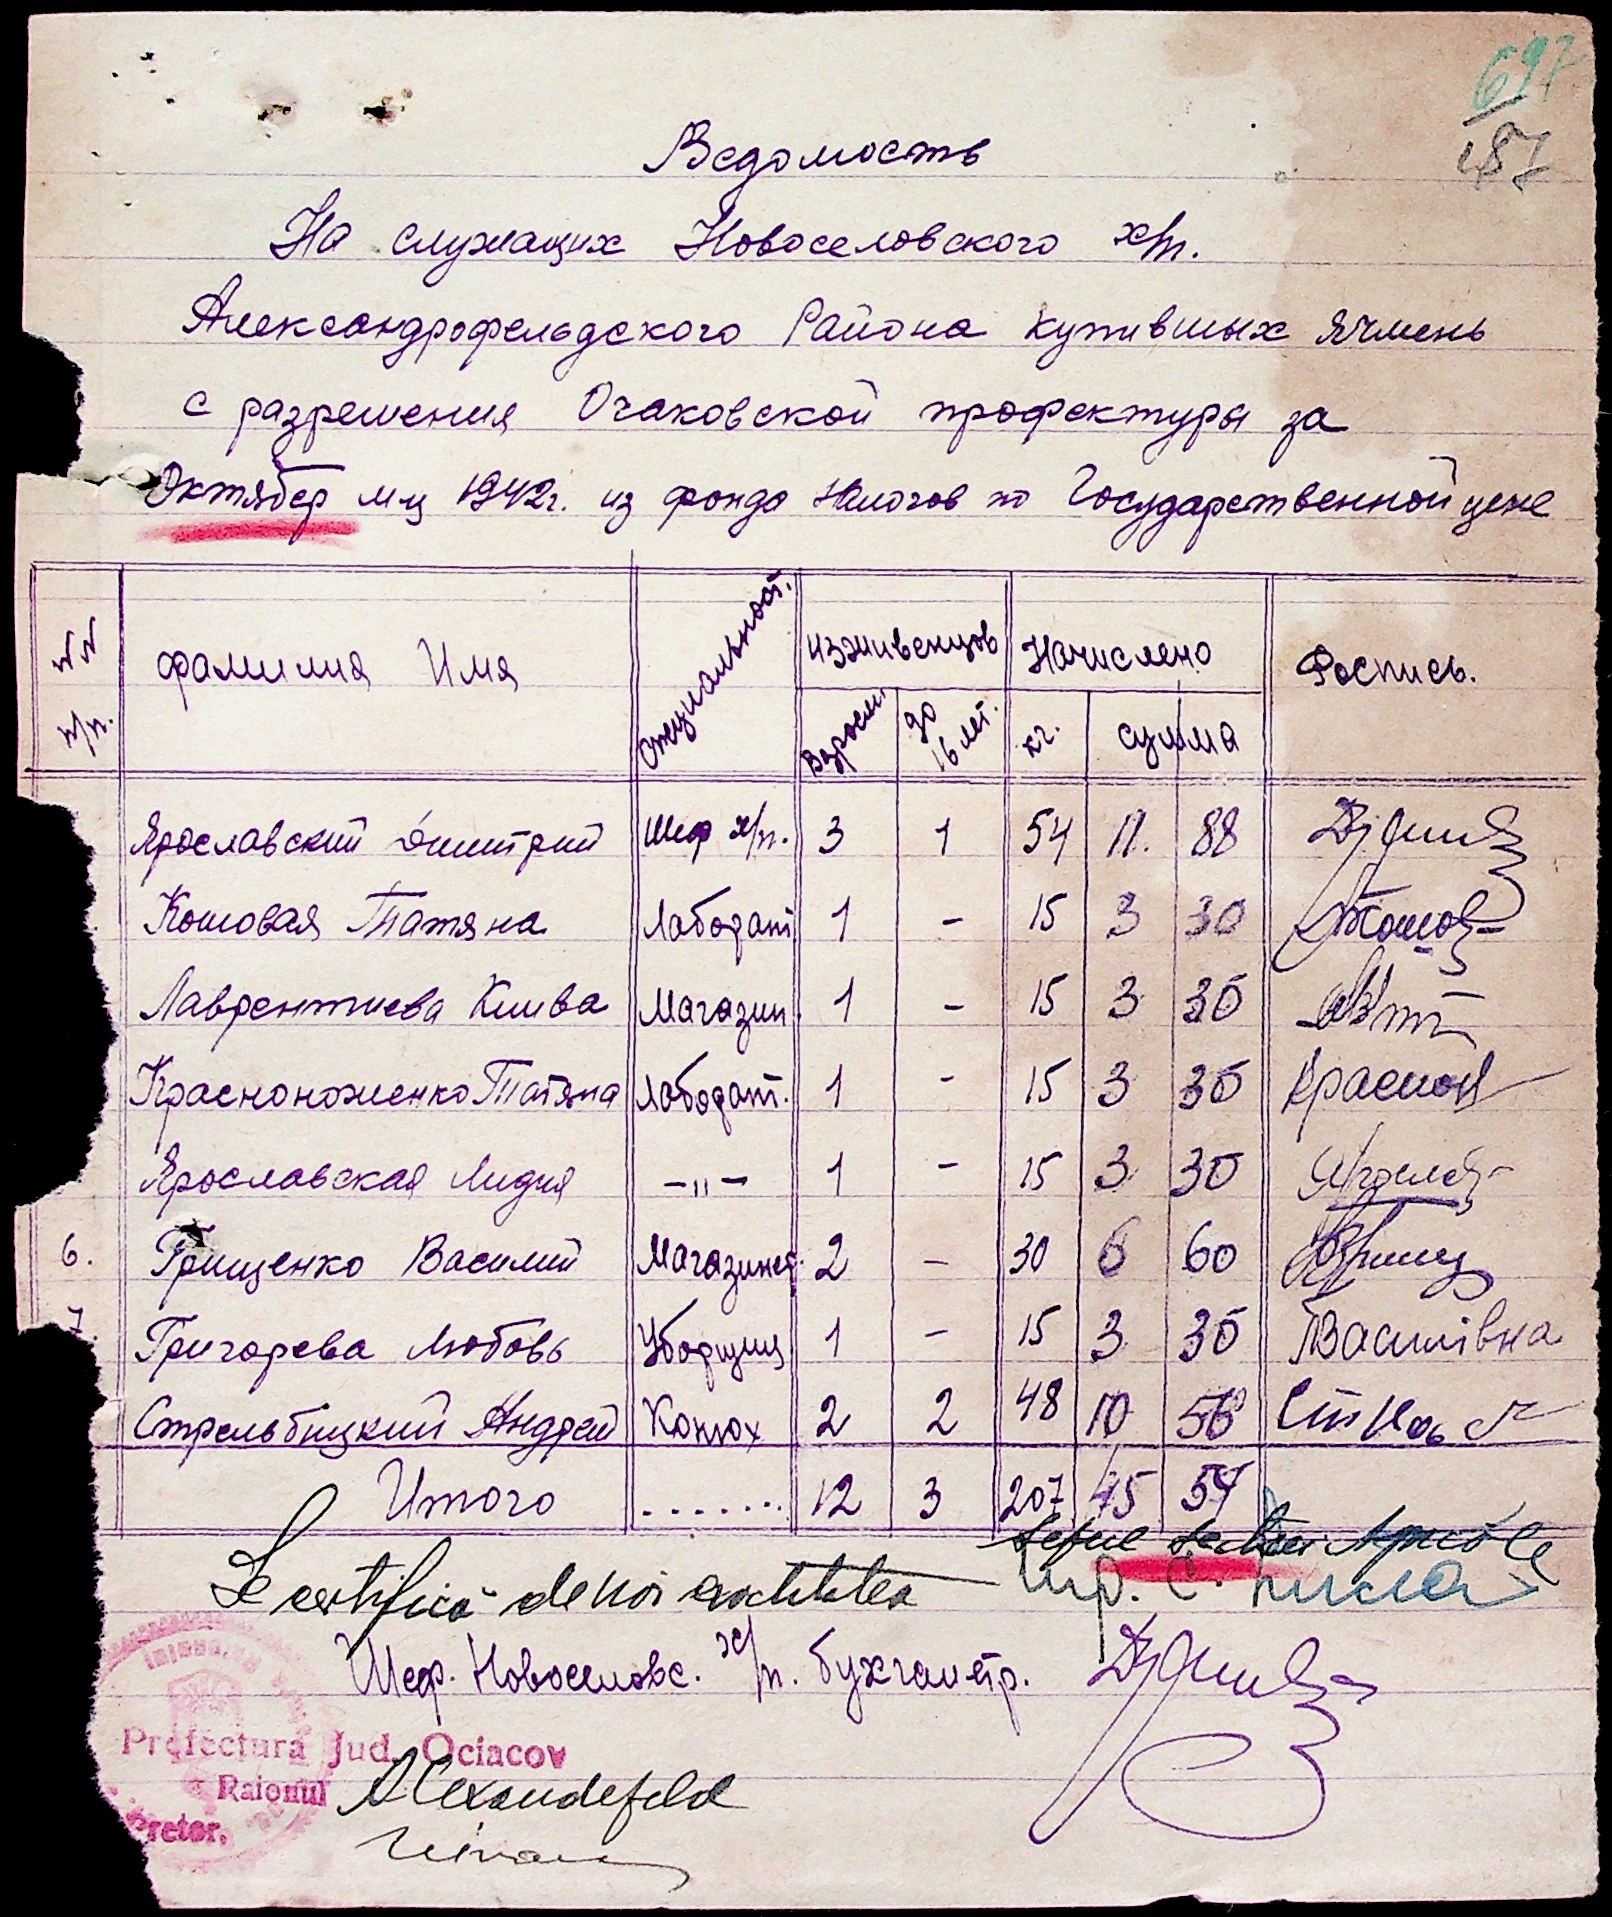 697
187
Ведомость
На служащих Новоселовского х/п.
Александрофельдского Района купивших ячмень
с разрешения Очаковской профектуры за
Октябер м-ц 1942г. из фонда Налогов по Государственной цене
№№ п/п. фамилия Имя Специальност. Изживенцов Начислено Роспись.
Взросл. до 16 лет. кг. сумма
Ярославский Димитрий Шеф х/п. 3 1 54 11. 88
Кошовая Татяна Лаборант 1 - 15 3 30
Лаврентиева Клива Магазин 1 - 15 3 30
Красноноженко Татяна Лаборант. 1 - 15 3 30 Краснон
Ярославская Лидия -"- 1 - 15 3 30 Яросла
6. Грищенко Василий Магазинер. 2 - 30 6 60
7. Григорева Любовь Уборщиц 1 - 15 3 30 Василівна
Стрельбицкий Андрей Конюх 2 2 48 10 56
Итого ....... 12 3 207 45 54
Șeful Secției Agricole
Se certifică de noi
Шеф. Новоселовс. х/п. бухгалтр.
Prefectura Jud. Ociacov
Raionul Alexandefeld
Pretor,